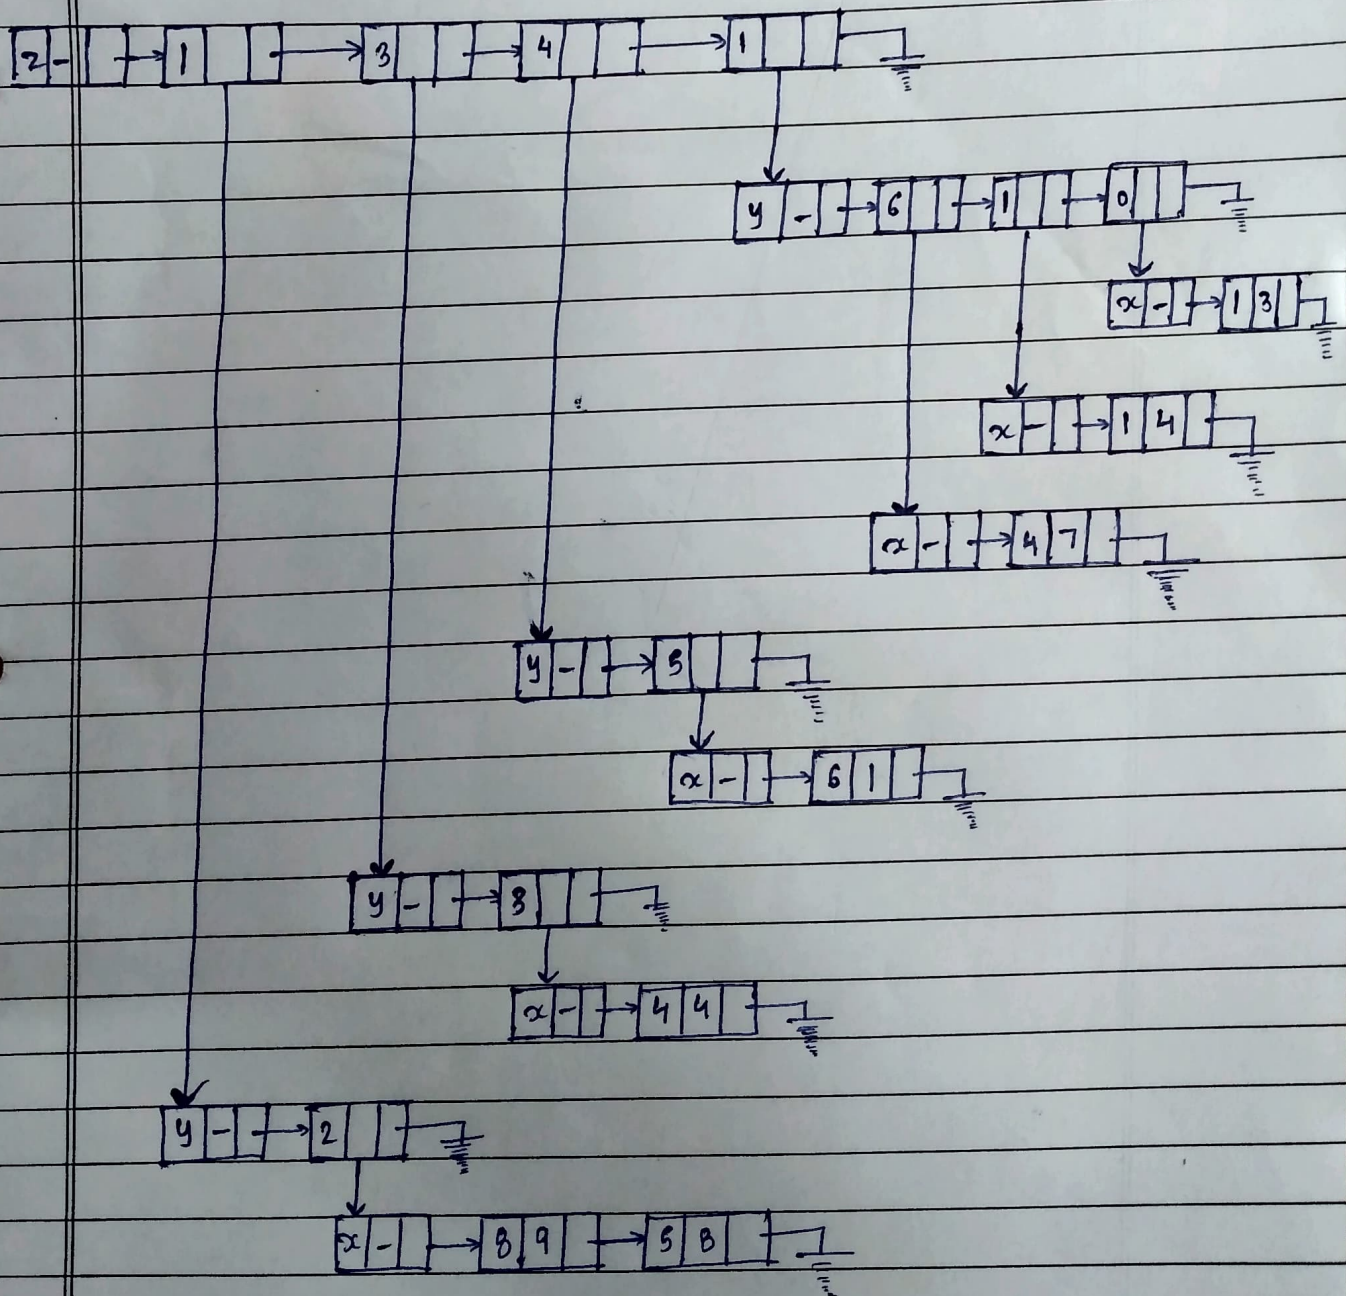 2 - 1 3 4 1
y - 6 1 0
x - 1 3
x - 1 4
x - 4 7
y - 5
x - 6 1
y - 3
x - 4 4
y - 2
x - 8 9 5 8